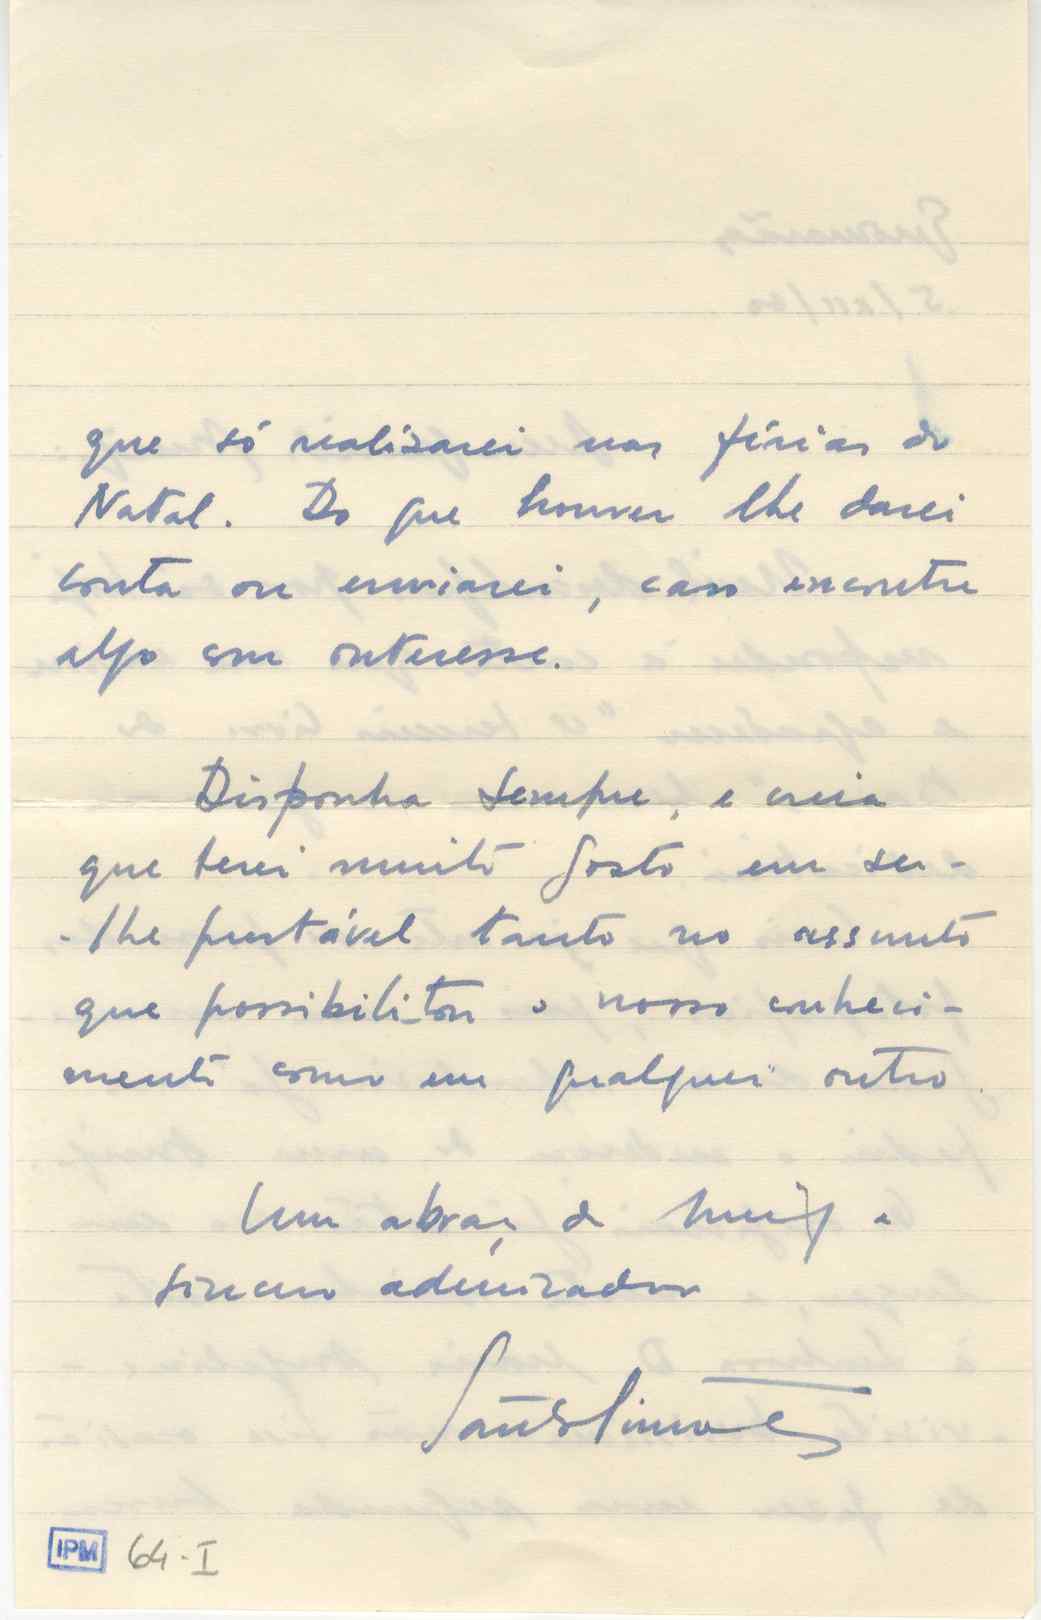 que só realizarei nas férias do
Natal. Do que houver lhe darei
conta ou enviarei, caso encontre
algo com interesse.
Disponha sempre, e creia
que terei muito gosto em ser-
-lhe prestável tanto no assunto
que possibilitou o nosso conheci-
mento como em qualquer outro.
Um abraço do amigo e
sincero admirador
Santos Simões
IPM 64-I